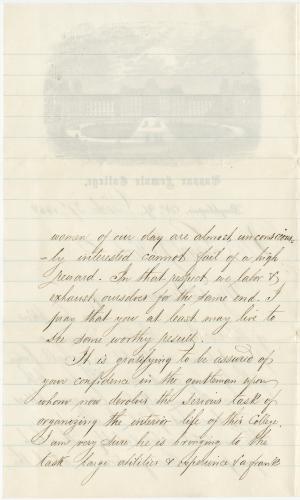 women of our day are almost unconscious-
-ly interested cannot fail of a high
reward. In that respect, we labor &
exhaust ourselves for the same end. I
pray that you at least may live to
see some worthy result.
It is gratifying to be assured of
your confidence in the gentleman upon
whom now devolves the serious task of
organizing the interior life of this College.
I am very sure he is bringing to the
task large abilities & experience & a frank